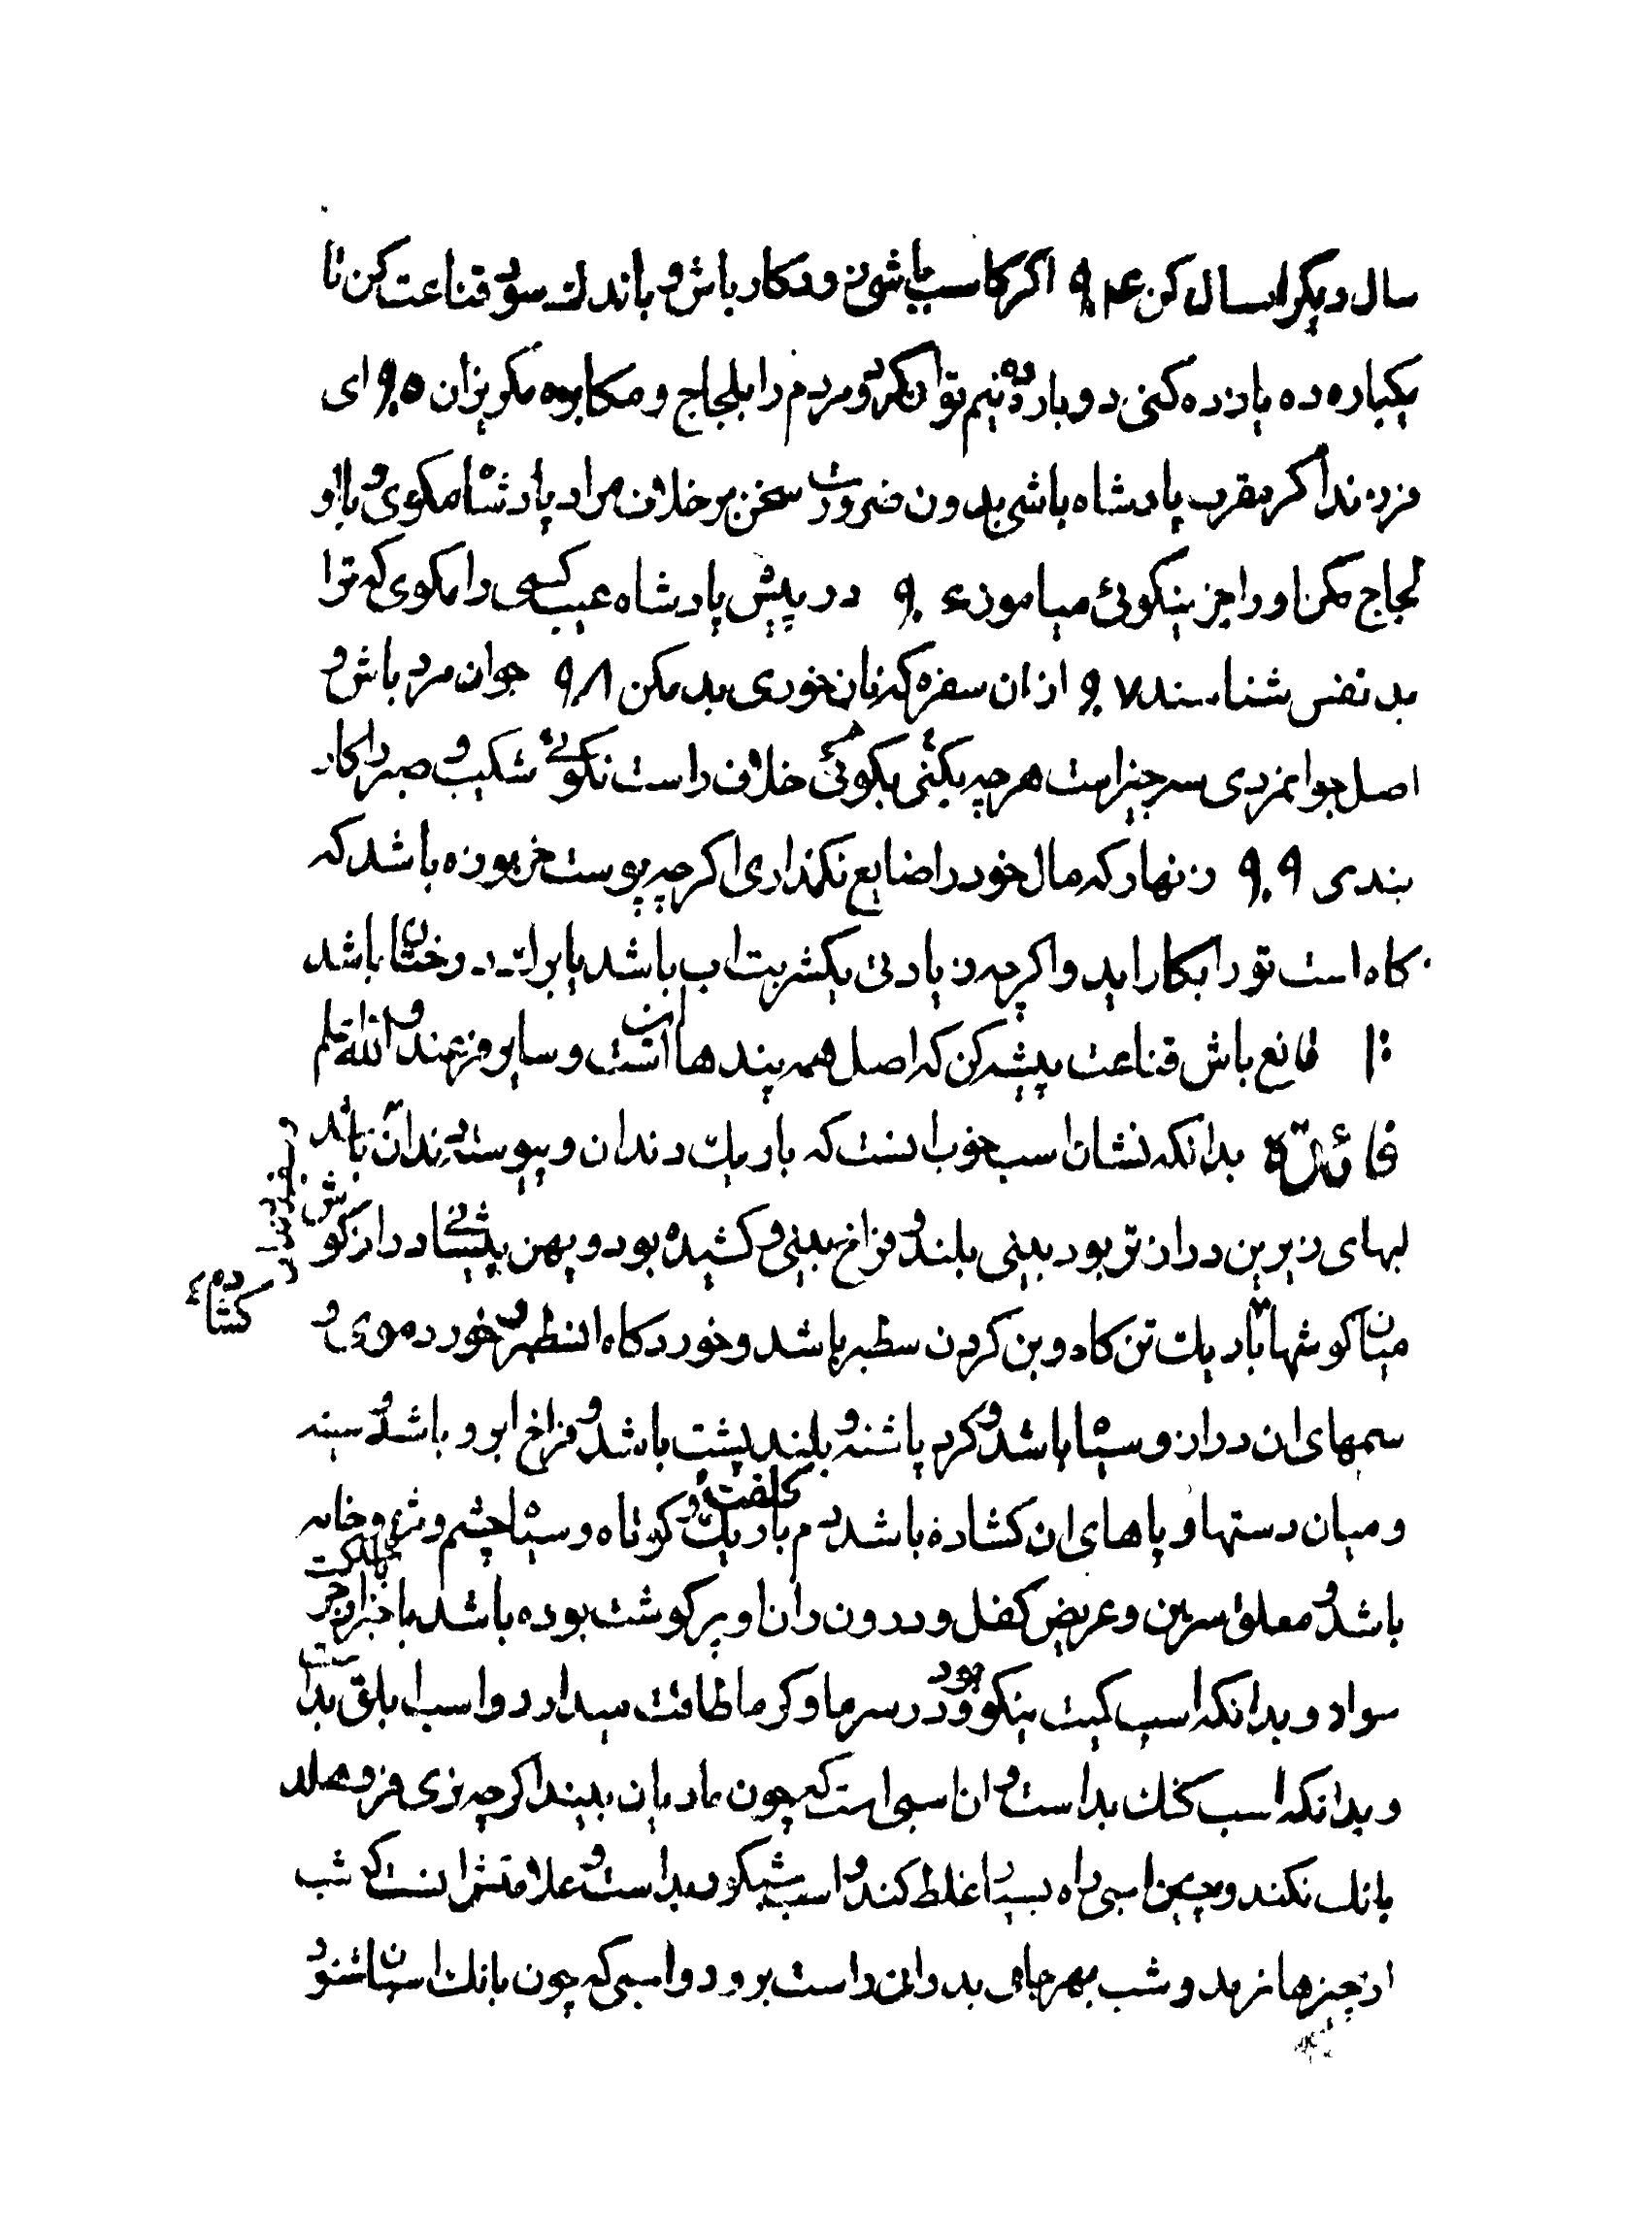 سال دیکر ارسال کن ۹۰۴ اکر کاسب باشی زودکار باش و باندك سود قناعت کن تا
یکباره ده یازده کنی دو بار ده نیم توان کرد و مردم را بلجاج و مکابره مکریزان ۹۰۵ ای
فرزند اکر مقرب پادشاه باشی بدون ضرورت سخن بر خلاف مراد پادشاه مکوی و با او
لجاج مکن او را جز بنیکوئی میاموز ۹۰۶ در پیش پادشاه عیب کسی را مکوی که ترا
بد نفس شناسند ۹۰۷ از ان سفره که نان خوری بد مکن ۹۰۸ جوان مرد باش و
اصل جوانمردی سه چیز است هر چه بکنی بکوئی خلاف راست نکوئی و شکیب و صبر را کار
بندی ۹۰۹ زنهار که مال خود را ضایع نکذاری اکر چه پوست خربوزه باشد که
کاه است تو را بکار اید و اکر چه زیادتی یکشربت اب باشد یا برك درختان باشد
قانع باش قناعت پیشه کن که اصل همه پندها انست و سایر فرعند و الله اعلم
فائدة بدانکه نشان اسب خوب انست که باریك دندان و پیوسته دندان باشد
لبهای زیرین دراز تر بود بینی بلند و فراخ بینی و کشیده بود و پهن پیشانی دراز کوش
کشاده
میان کوشها باریك تن کاه و بن کردن سطبر باشد و خورد کاه سطبر و خورد موی و
سمهای ان دراز و سیاه باشد و کرد پاشنه و بلند پشت باشد و فراخ ابرو باشد و سینه
کلفت
و میان دستها و پاهای ان کشاده باشد دم باریك و کوتاه و سیاه چشم و مژه و خایه
باشد و معلق سرین و عریض کفل و درون ران او پر کوشت بوده باشد با خبر از حرکت
سوار و بدانکه اسب کمیت نیکو بود در سرما و کرما طاقت میدارد و اسب ابلق بد است
و بدانکه اسب کنك بد است و ان اسبی است که چون مادیان بیند اکر چه نری فرو هلد
بانك نکند و چنین اسبی راه بسیار غلط کند و اسب شبکور بد است و علامتش انست که شب
از چیزها نرمد و شب بهر جای بد رانی راست برود و اسبی که چون بانك اسبان شنود